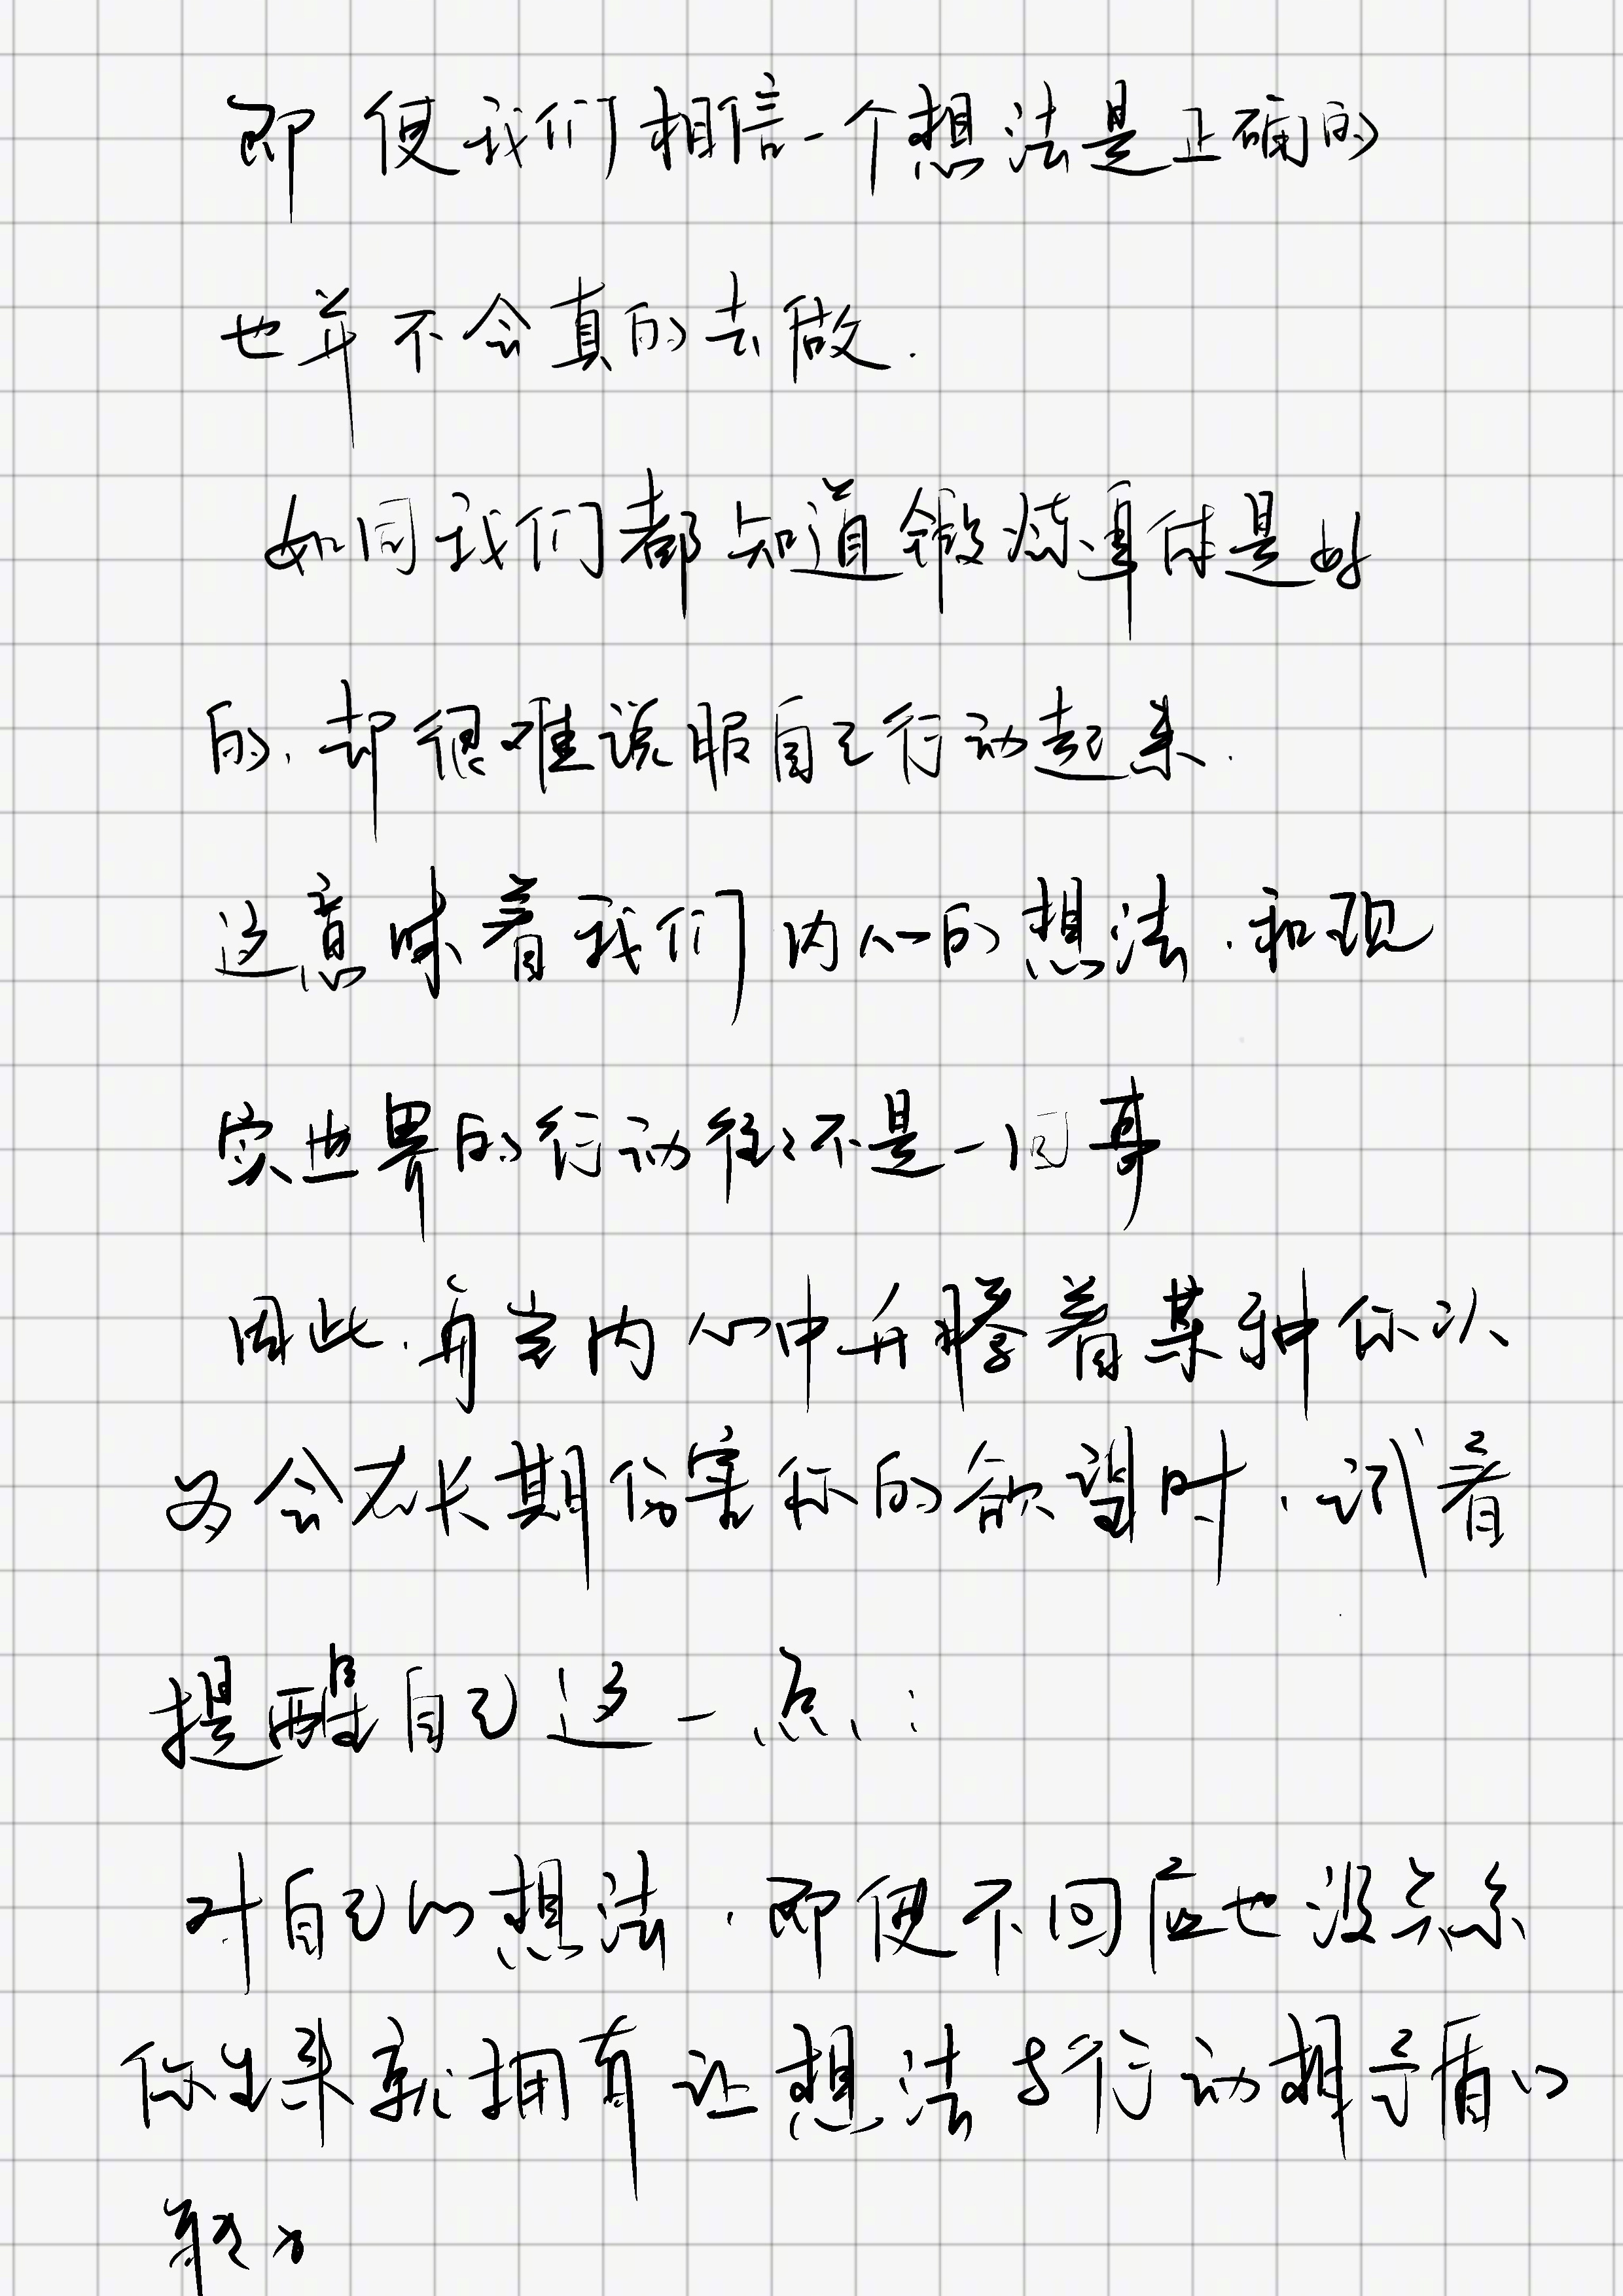 即便我们相信一个想法是正确的
也并不会真的去做.
如同我们都知道锻炼身体是好
的,却很难说服自己行动起来.
这意味着我们内心的想法,和现
实世界的行动往往不是一回事
因此,每当内心中升腾着某种你认
为会在长期伤害你的欲望时,试着
提醒自己这一点:
对自己的想法,即使不回应也没关系
你生来就拥有让想法与行动相矛盾的
能力